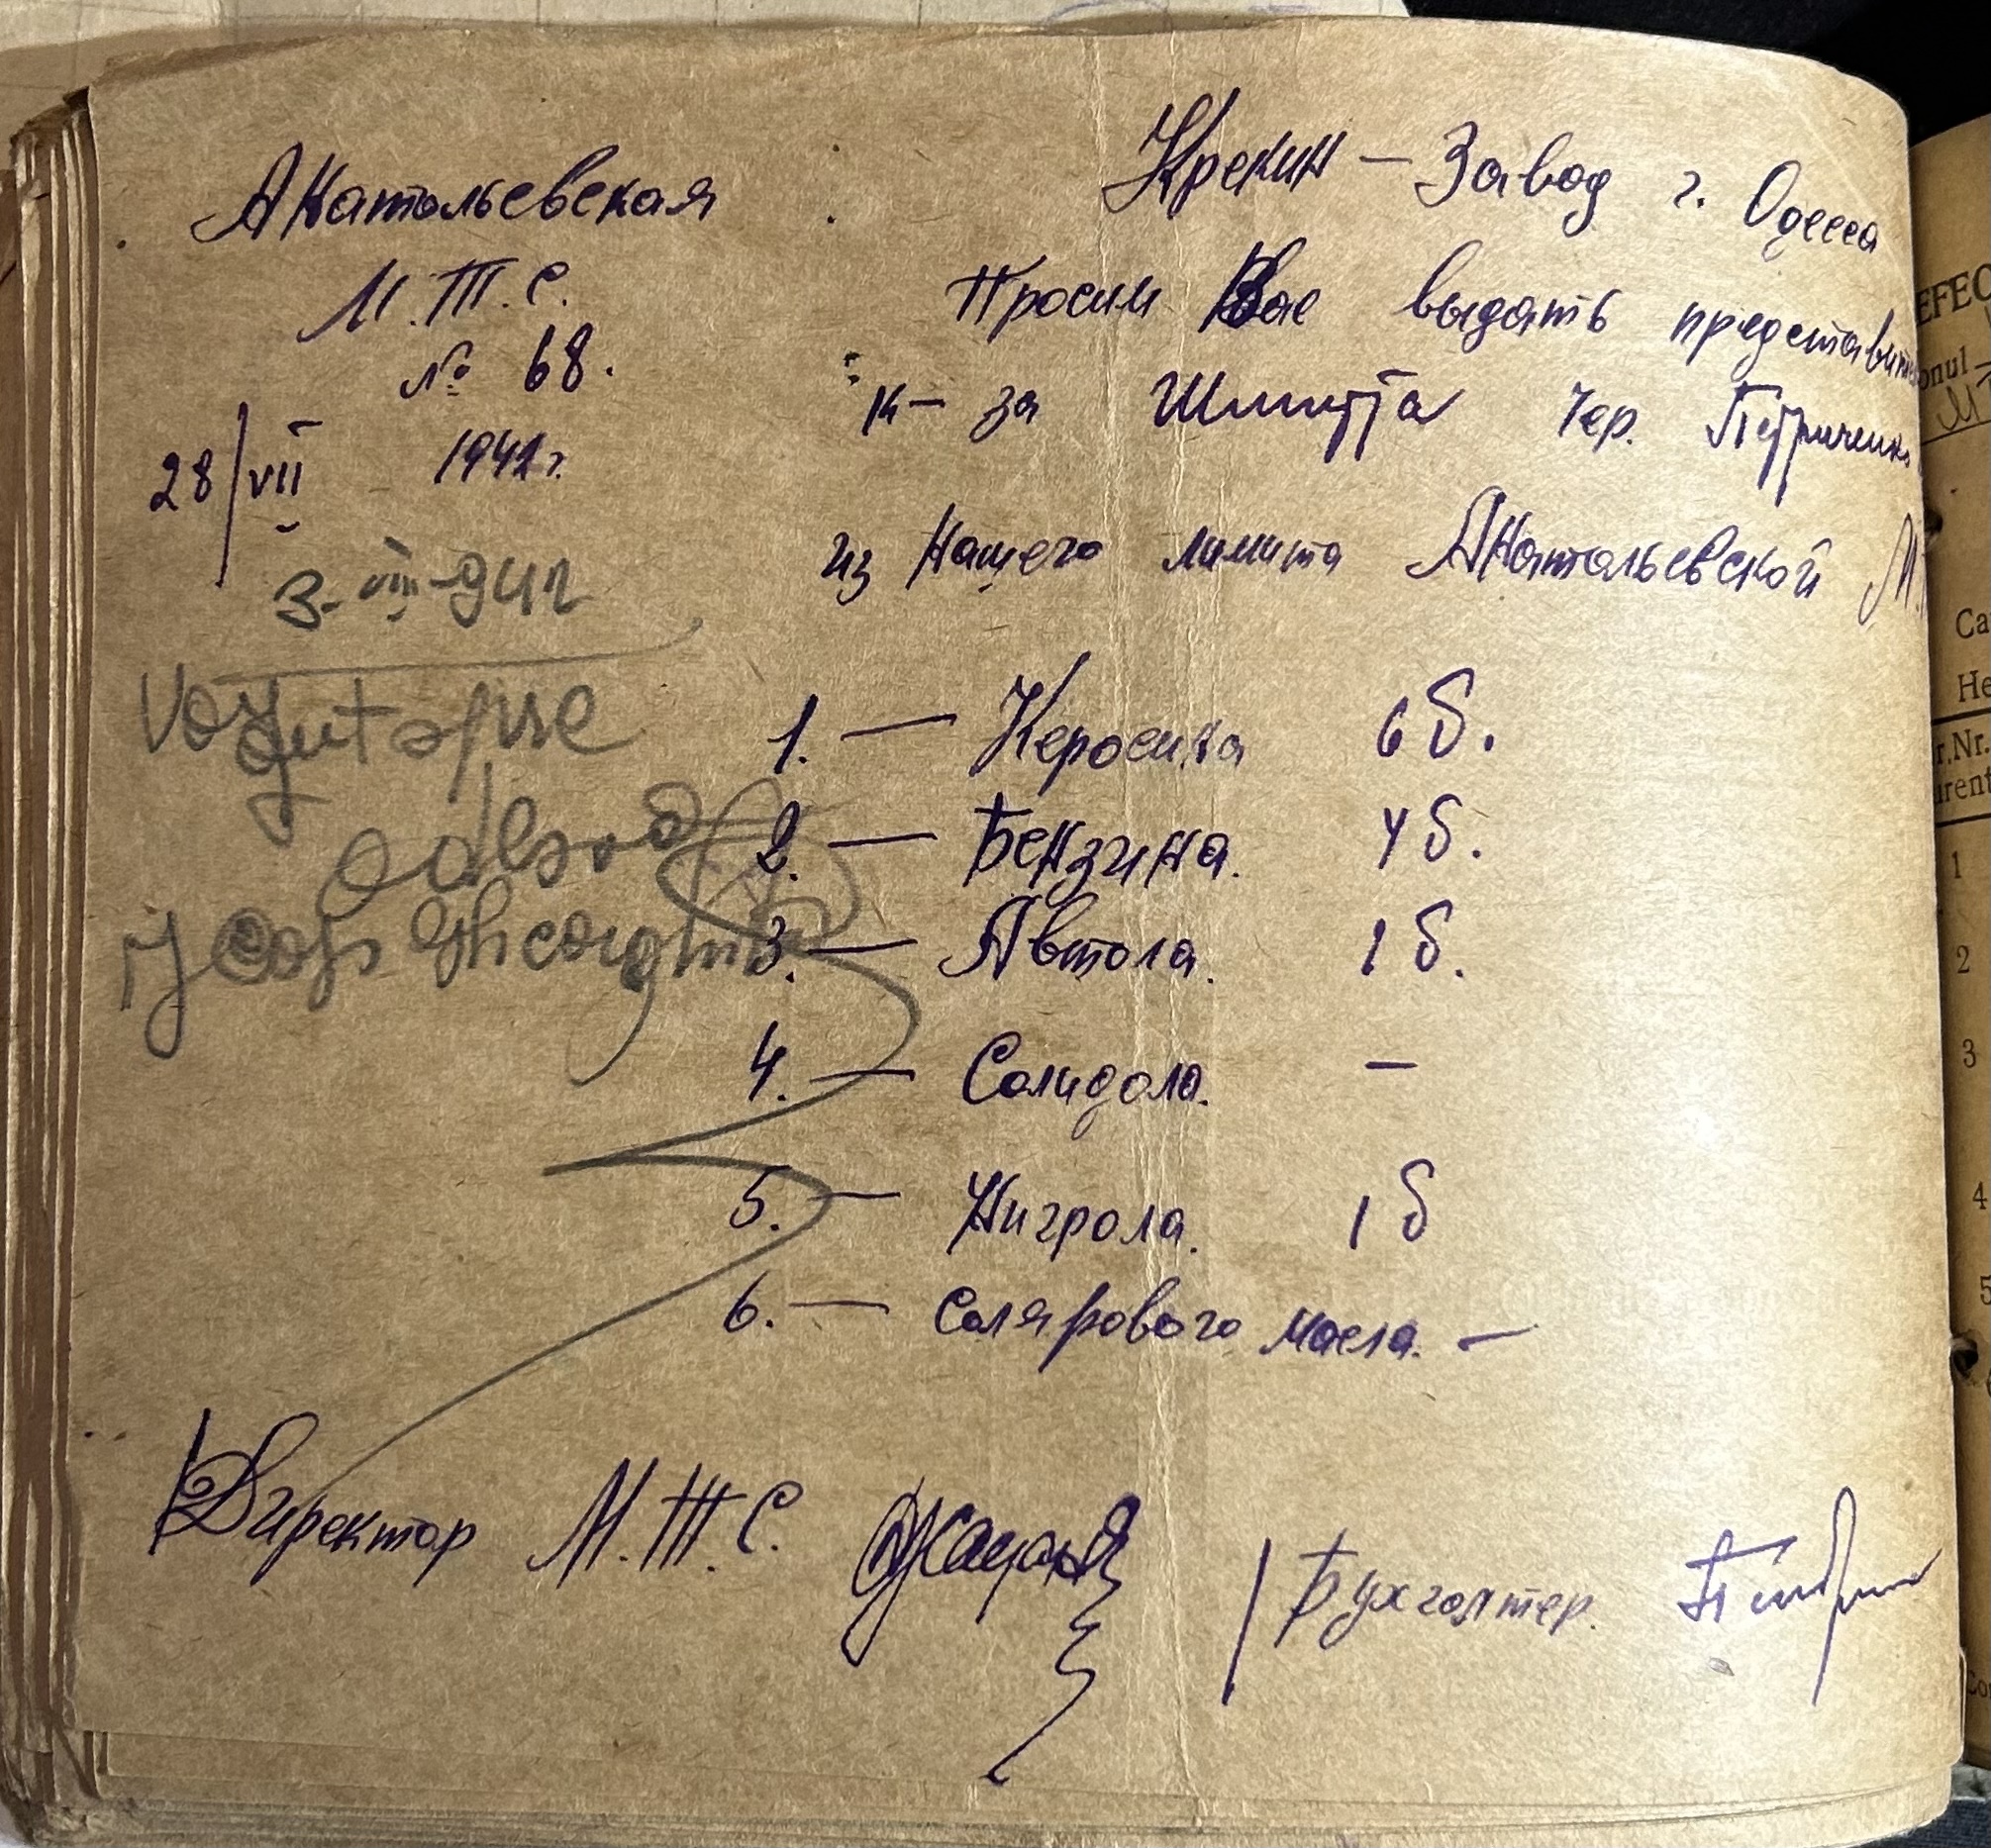 Анатольевская
М.Т.С.
№ 68.
28/VII 1941 г.
Крекин – Завод г. Одесса
Просим Вас выдать представит
к–за Шмидта Чер. Петриченко
из Нашего лимита Анатольевской М.
3. VIII
1. — Керосина 6 б.
2. — Бензина. 4 б.
3. — Автола. 1 б.
4. — Солидола. —
5. — Нигрола. 1 б
6. — Солярового масла. —
Gheorghe
Директор М.Т.С.
Бухгалтер.
EFEC
onul
Ca
He
r.Nr.
urent
1
2
3
4
5